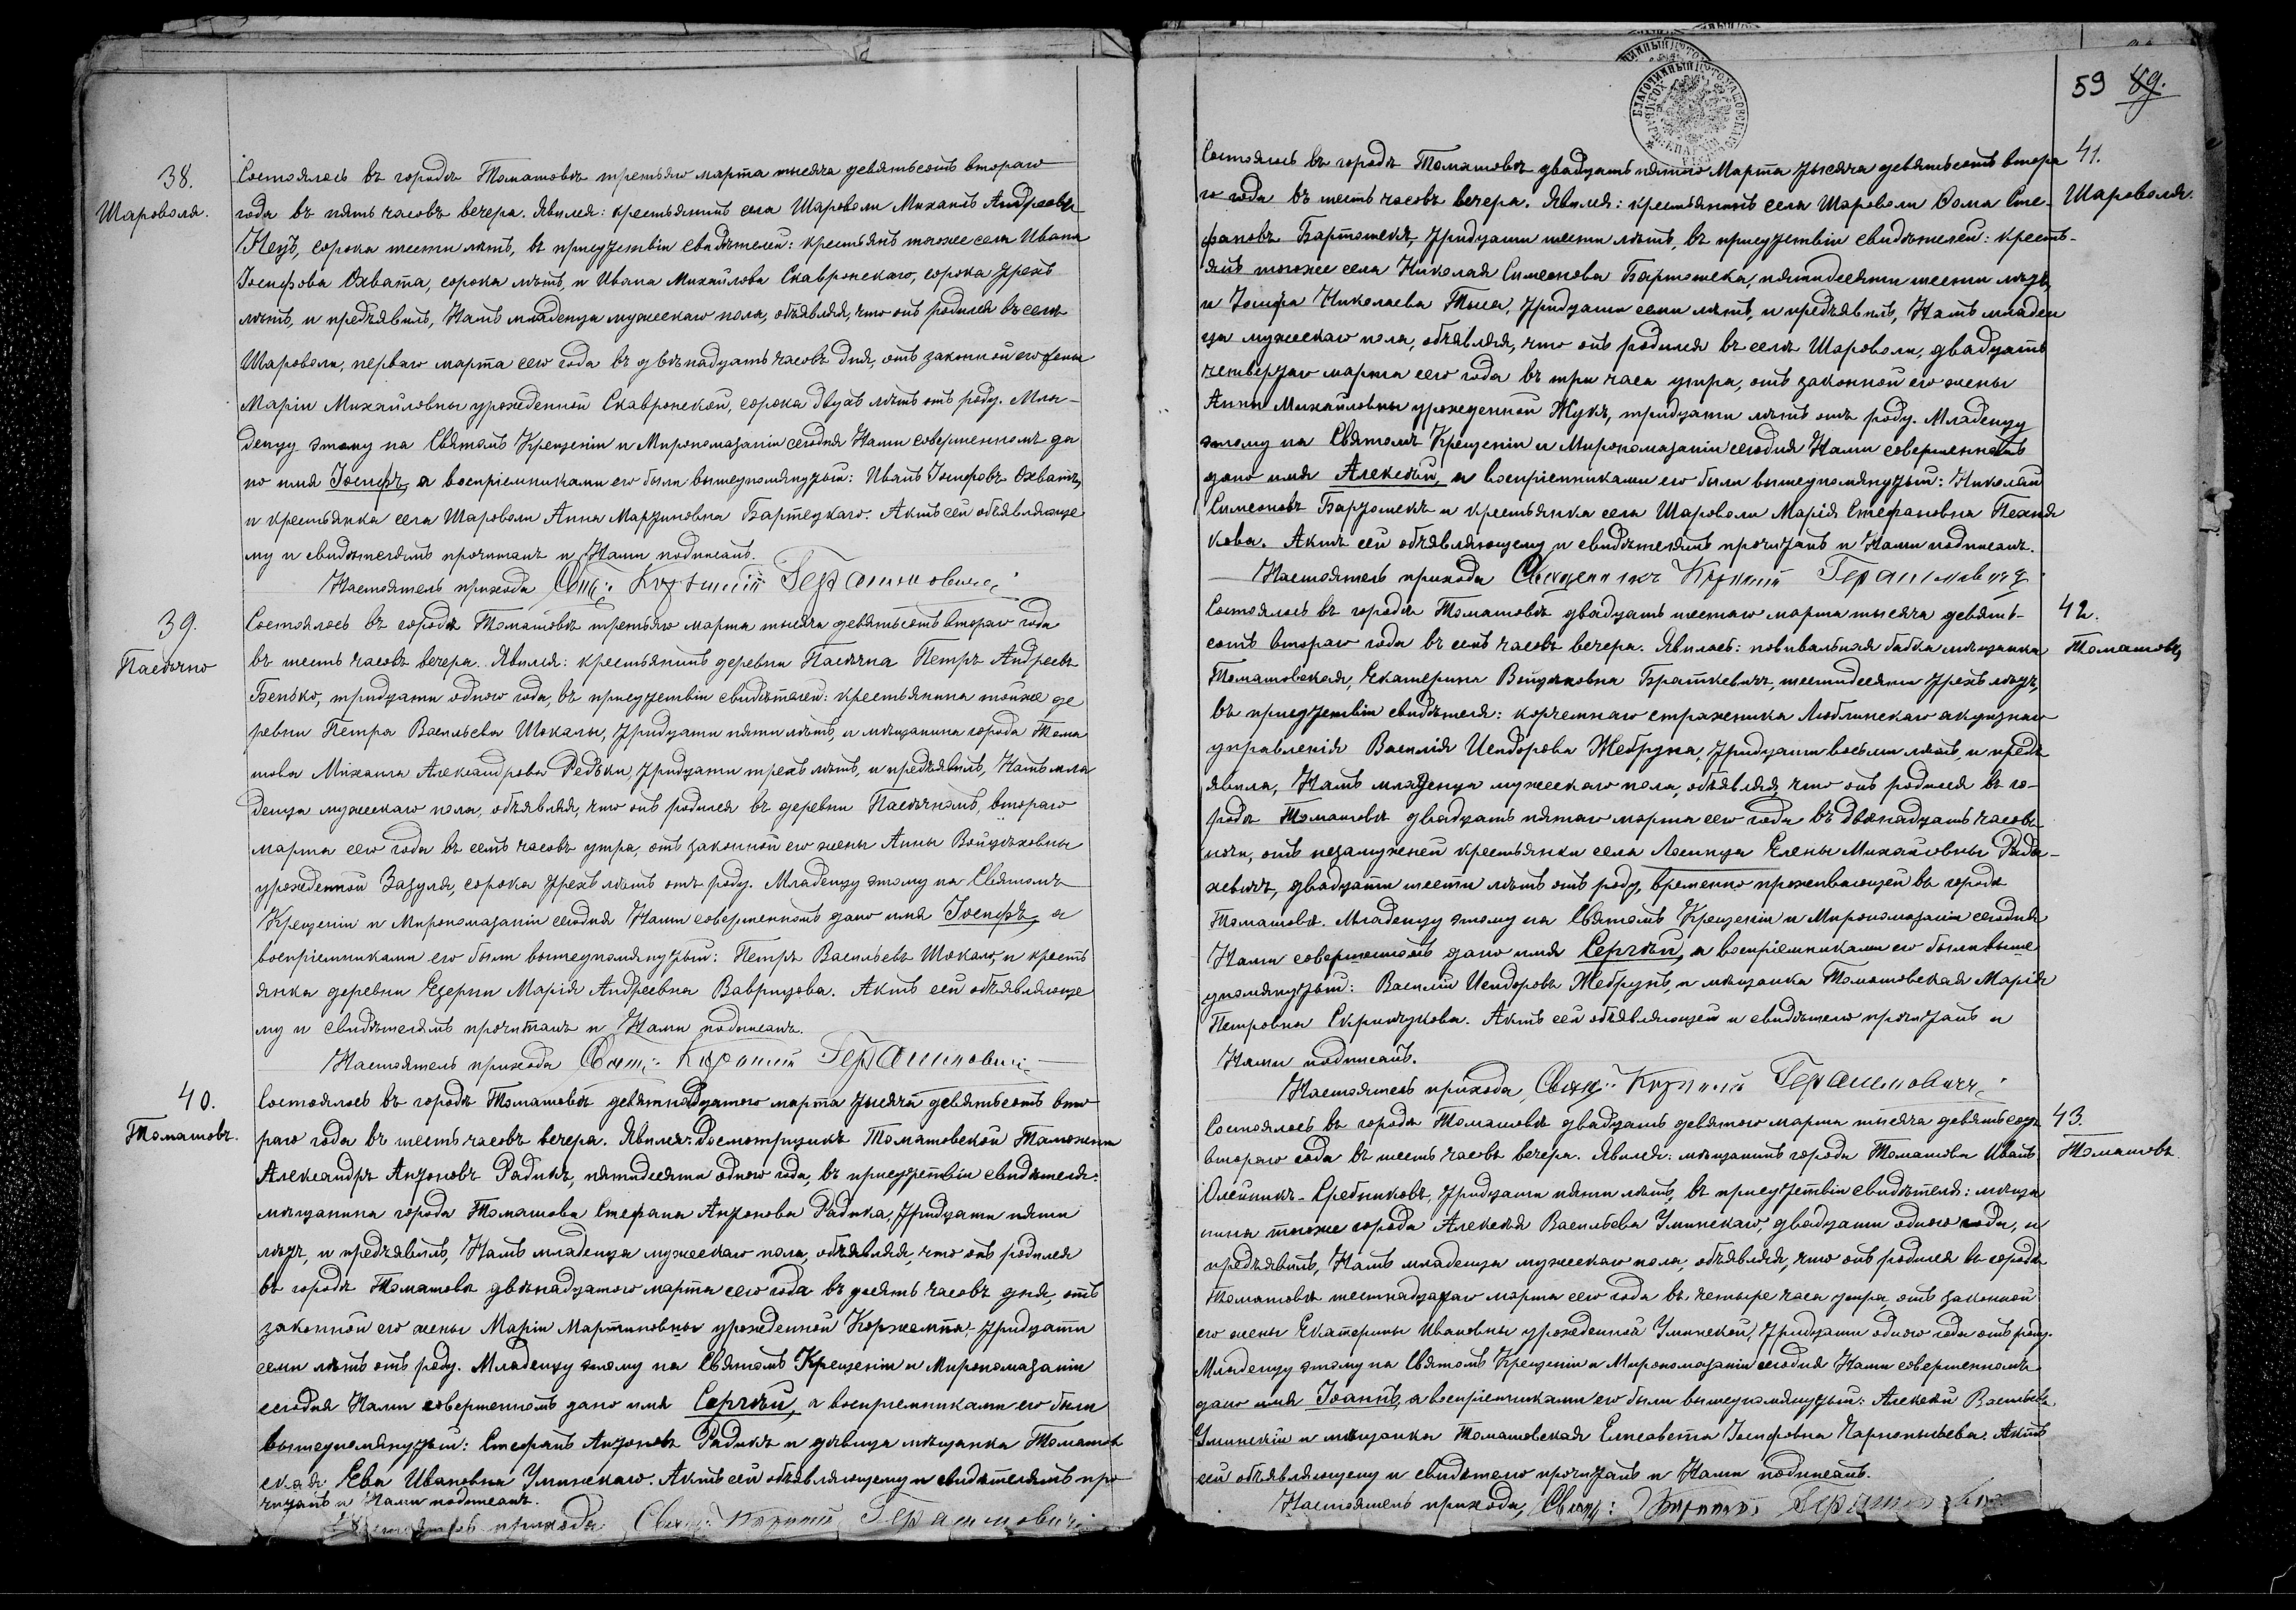 38.
Шароволя.
Состоялось въ городѣ Томашовѣ третьяго марта тысяча девятьсотъ второго
года въ пять часовъ вечера. Явился: крестьянинъ села Шароволи Михаилъ Андреевъ
сорока шести лѣтъ, въ присутствіи свидѣтелей: крестьянъ тогоже села Ивана
Іосифова Охвата, сорока лѣтъ, и Ивана Михайлова Скавронскаго, сорока трехъ
лѣтъ, и предъявилъ, Намъ младенца мужескаго пола, объявляя, что онъ родился въ селѣ
Шароволи, перваго марта сего года въ двѣнадцать часовъ дня, отъ законной его жены
Маріи Михайловны урожденной Скавронской, сорока двухъ лѣтъ отъ роду. Мла-
денцу этому на Святомъ Крещеніи и Миропомазаніи сегодня Нами совершенномъ да
но имя Іосифъ, а воспріемниками его были вышеупомянутый: Иванъ Іосифовъ Охватъ,
и крестьянка села Шароволи Анна Мартиновна Бартецкаго. Актъ сей объявляюще
му и свидѣтелямъ прочитанъ и Нами подписанъ.
Настоятель прихода Свящ: Корнилій Герасимовичъ
39.
Пасѣчно
Состоялось въ городѣ Томашовѣ третьяго марта тысяча девятьсотъ второго года
въ шесть часовъ вечера. Явился: крестьянинъ деревни Пасѣчна Петръ Андреевъ
Бенько, тридцати одного года, въ присутствіи свидѣтелей: крестьянина тойже де
ревни Петра Васильева Шокалы, тридцати пяти лѣтъ, и мѣщанина города Тома
шова Михаила Александрова Редьки, тридцати трехъ лѣтъ, и предъявилъ, Намъ мла
денца мужескаго пола, объявляя, что онъ родился въ деревни Пасѣчномъ, второго
марта сего года въ семь часовъ утра, отъ законной его жены Анны Войцѣховны
урожденной Зазуля, сорока трехъ лѣтъ отъ роду. Младенцу этому на Святомъ
Крещеніи и Миропомазаніи сегодня Нами совершенномъ дано имя Іосифъ, а
воспріемниками его были вышеупомянутый: Петръ Васильевъ Шокало, и кресть
янка деревни Езерни Марія Андреевна Ваврицова. Актъ сей объявляюще
му и свидѣтелямъ прочитанъ и Нами подписанъ.
Настоятель прихода Свящ: Корнилій Герасимовичъ
40.
Томашовъ.
Состоялось въ городѣ Томашовѣ девятнадцатого марта тысяча девятьсотъ вто
раго года въ шесть часовъ вечера. Явился: досмотрщикъ Томашовской Таможни
Александръ Антоновъ Радикъ, пятидесяти одного года, въ присутствіи свидѣтеля:
мѣщанина города Томашова Стефана Антонова Радика, тридцати пяти
лѣтъ, и предъявилъ, Намъ младенца мужескаго пола, объявляя, что онъ родился
въ городѣ Томашовѣ двѣнадцатого марта сего года въ десять часовъ дня, отъ
законной его жены Маріи Мартиновны урожденной Коржемпа, тридцати
семи лѣтъ отъ роду. Младенцу этому на Святомъ Крещеніи и Миропомазаніи
сегодня Нами совершенномъ дано имя Сергѣй, а воспріемниками его были
вышеупомянутый: Стефанъ Антоновъ Радикъ и дѣвица мѣщанка Томашов
ская Ева Ивановна Улинскаго. Актъ сей объявляющему и свидѣтелямъ про
читанъ и Нами подписанъ.
Настоятель прихода Свящ: Корнилій Герасимовичъ
59 89.
41.
Шароволя.
Состоялось въ городѣ Томашовѣ двадцать пятого Марта тысяча девятьсотъ второ
го года въ шесть часовъ вечера. Явился: крестьянинъ села Шароволи Ѳома Сте-
фановъ Бартошекъ, тридцати шести лѣтъ, въ присутствіи свидѣтелей: кресть-
янъ тогоже села Николая Симеонова Бартошека, пятидесяти шести лѣтъ,
и Іосифа Николаева Тыса, тридцати семи лѣтъ, и предъявилъ, Намъ младен
ца мужескаго пола, объявляя, что онъ родился въ селѣ Шароволи, двадцать
четвертаго марта сего года въ три часа утра, отъ законной его жены
Анны Михайловны урожденной Жукъ, тридцати лѣтъ отъ роду. Младенцу
этому на Святомъ Крещеніи и Миропомазаніи сегодня Нами совершенномъ
дано имя Алексѣй, а воспріемниками его были вышеупомянутый: Николай
Симеоновъ Бартошекъ и крестьянка села Шароволи Марія Стефановна Пехня
кова. Актъ сей объявляющему и свидѣтелямъ прочитанъ и Нами подписанъ.
Настоятель прихода Священникъ Корнилій Герасимовичъ
42.
Томашовъ
Состоялось въ городѣ Томашовѣ двадцать шестаго марта тысяча девять-
сотъ второго года въ семь часовъ вечера. Явилась: повивальная бабка мѣщанка
Томашовская, Екатерина Войцѣховна Браткевичъ, шестидесяти трехъ лѣтъ,
въ присутствіи свидѣтеля: корчемнаго стражника Люблинскаго акцизнаго
управленія Василія Исидорова Жебруна, тридцати восьми лѣтъ, и предъ
явила, Намъ младенца мужескаго пола, объявляя, что онъ родился въ го-
родѣ Томашовѣ двадцать пятаго марта сего года въ двѣнадцать часовъ
ночи, отъ незамужней крестьянки села Лосинца Елены Михайловны Рада-
хевичъ, двадцати шести лѣтъ отъ роду, временно проживающей въ городѣ
Томашовѣ. Младенцу этому на Святомъ Крещеніи и Миропомазаніи сегодня
Нами совершенномъ дано имя Сергѣй, а воспріемниками его были выше
упомянутый: Василій Исидоровъ Жебрунъ, и мѣщанка Томашовская Марія
Петровна Актъ сей объявляющей и свидѣтелю прочитанъ и
Нами подписанъ.
Настоятель прихода, Свящ: Корнилій Герасимовичъ
43.
Томашовъ
Состоялось въ городѣ Томашовѣ двадцать девятого марта тысяча девятьсотъ
второго года въ шесть часовъ вечера. Явился: мѣщанинъ города Томашова Иванъ
Олейникъ-Сребниковъ, тридцати пяти лѣтъ, въ присутствіи свидѣтеля: мѣща
нина тогоже города Алексѣя Васильева Улинскаго, двадцати одного года, и
предъявилъ, Намъ младенца мужескаго пола, объявляя, что онъ родился въ городѣ
Томашовѣ шестнадцатаго марта сего года въ четыре часа утра, отъ законной
его жены Екатерины Ивановны урожденной Улинской, тридцати одного года отъ роду.
Младенцу этому на Святомъ Крещеніи и Миропомазаніи сегодня Нами совершенномъ
дано имя Іоаннъ, а воспріемниками его были вышеупомянутый: Алексѣй Васильевъ
Улинскій и мѣщанка Томашовская Елисавета Іосифовна Актъ
сей объявляющему и свидѣтелю прочитанъ и Нами подписанъ.
Настоятель прихода, Свящ: Корнилій Герасимовичъ